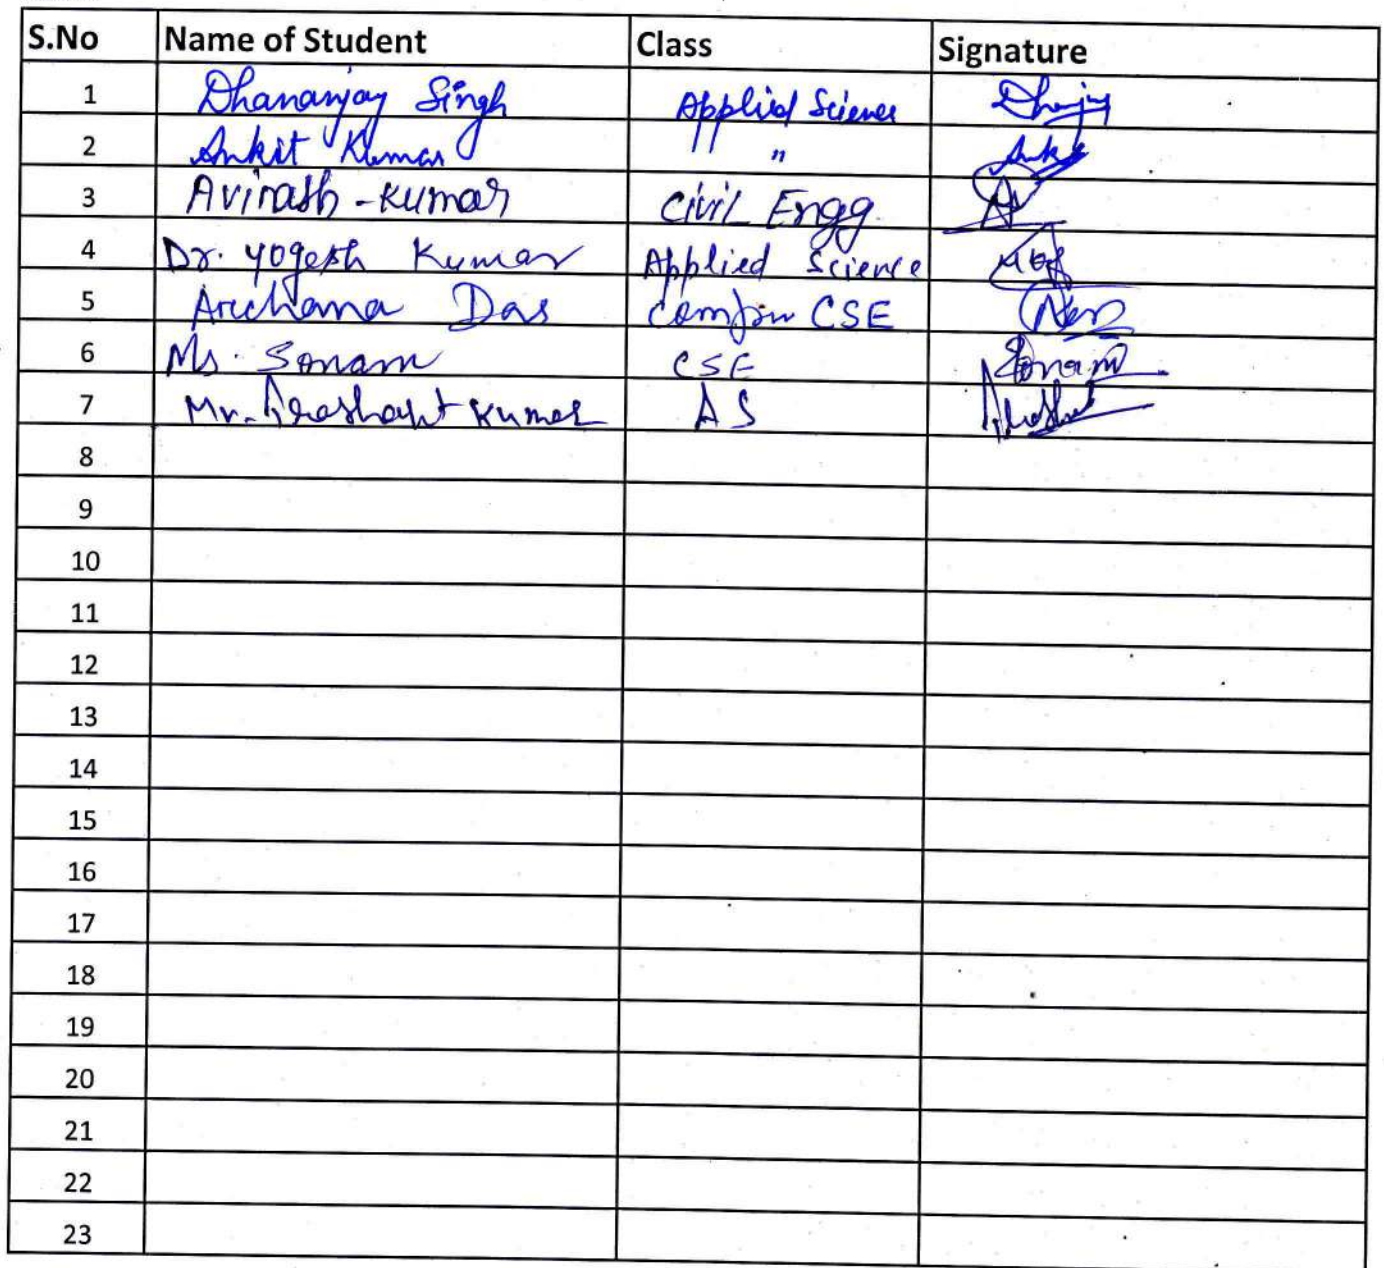 S.No Name of Student Class Signature
1 Dhananjay Singh Applied Science
2 Ankit Kumar "
3 Avinash-Kumar Civil Engg
4 Dr. Yogesh Kumar Applied Science
5 Archana Das CSE
6 Ms. Sonam CSE Sonam
7 Mr. Prashant Kumar AS
8
9
10
11
12
13
14
15
16
17
18
19
20
21
22
23